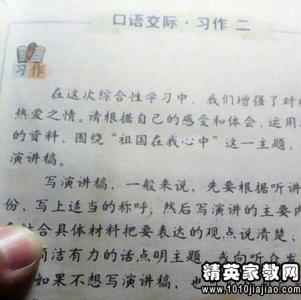 口语交际·习作 二
习作
在这次综合性学习中，我们增强了对
热爱之情。请根据自己的感受和体会，运用
的资料，围绕“祖国在我心中”这一主题，
演讲稿。
写演讲稿，一般来说，先要根据听讲
份，写上适当的称呼；然后写演讲的主要内
结合具体材料把要表达的观点说清楚，
简洁有力的话点明主题，或向听众
如果不想写演讲稿，也
精英家教网
www.1010jiajiao.com